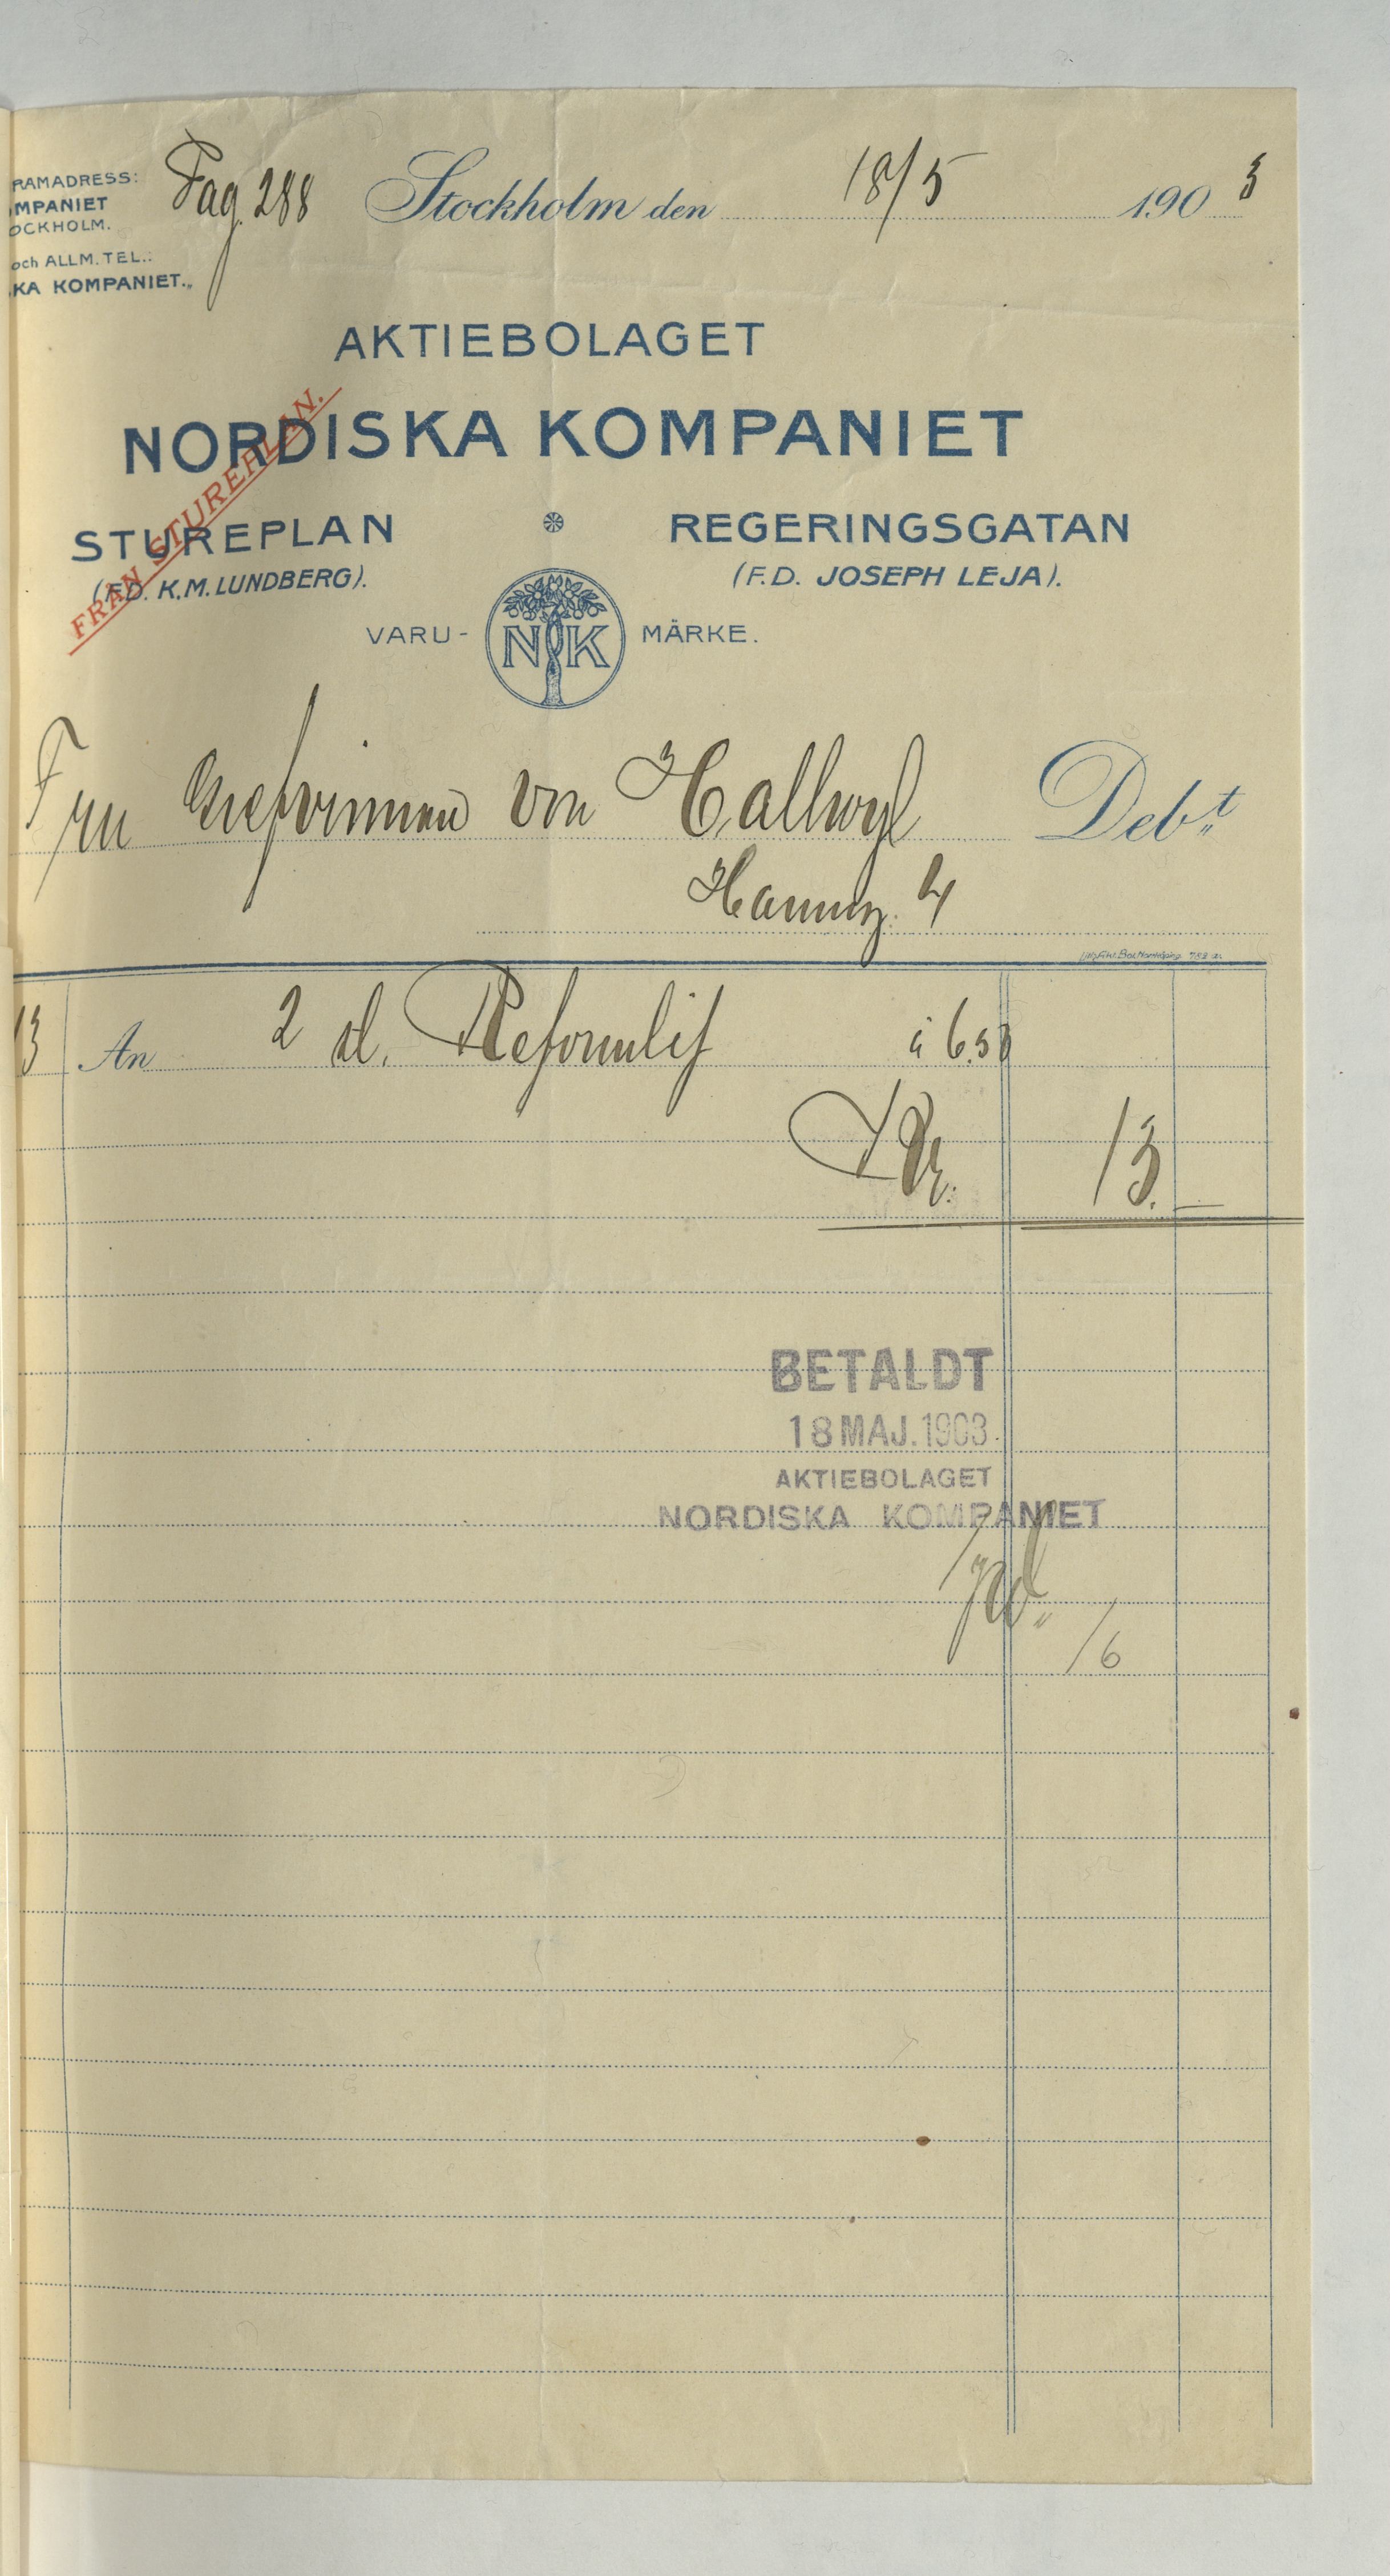 RAMADRESS:
MPANIET
OCKHOLM.
och ALLM. TEL.:
KA KOMPANIET.
Fag. 288 Stockholm den 18/5 1903
AKTIEBOLAGET
NORDISKA KOMPANIET
FRÅN STUREPLAN.
STUREPLAN REGERINGSGATAN
(F.D. K.M. LUNDBERG). (F.D. JOSEPH LEJA).
VARU- NK MÄRKE.
Fru Grefvinnan von Hallwyl Deb.t
Hamng. 4
13 An 2 st. Reformlif à 6.50
Kr. 13.—
BETALDT
18 MAJ. 1903
AKTIEBOLAGET
NORDISKA KOMPANIET
/6